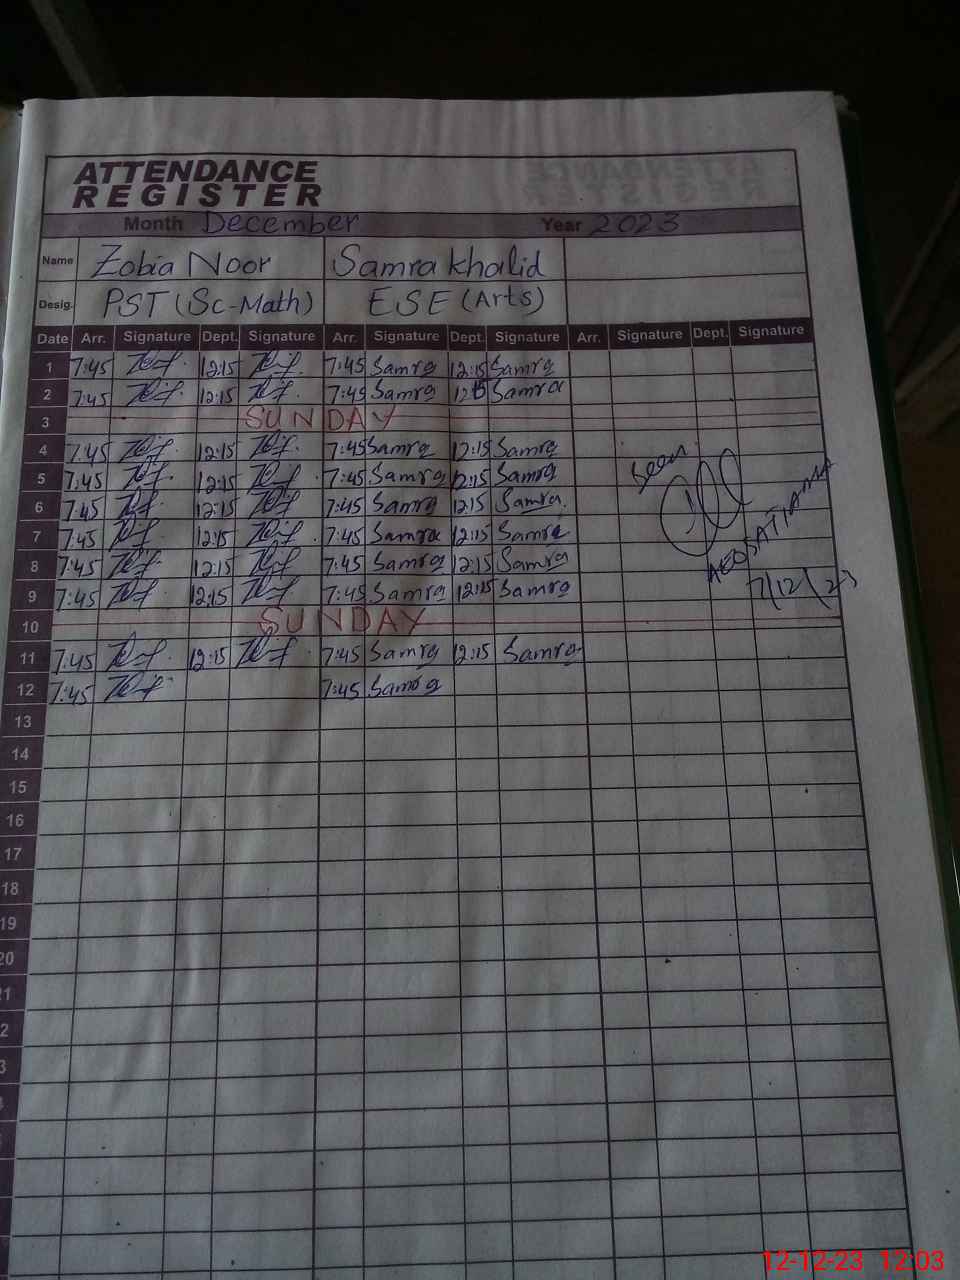 ATTENDANCE
REGISTER
Month December Year 2023
Name Zobia Noor Samra Khalid
Desig. PST (Sc-Math) ESE (Arts)
Date Arr. Signature Dept. Signature Arr. Signature Dept. Signature Arr. Signature Dept. Signature
1 7:45 12:15 7:45 Samra 12:15 Samra
2 7:45 12:15 7:45 Samra 12:15 Samra
3 SUNDAY
4 7:45 12:15 7:45 Samra 12:15 Samra
5 7:45 12:15 7:45 Samra 12:15 Samra
6 7:45 12:15 7:45 Samra 12:15 Samra
7 7:45 12:15 7:45 Samra 12:15 Samra
8 7:45 12:15 7:45 Samra 12:15 Samra
9 7:45 12:15 7:45 Samra 12:15 Samra
10 SUNDAY
11 7:45 12:15 7:45 Samra 12:15 Samra
12 7:45 7:45 Samra
13
14
15
16
17
18
19
20
21
2
3
Seen
7/12/23
12-12-23 12:03